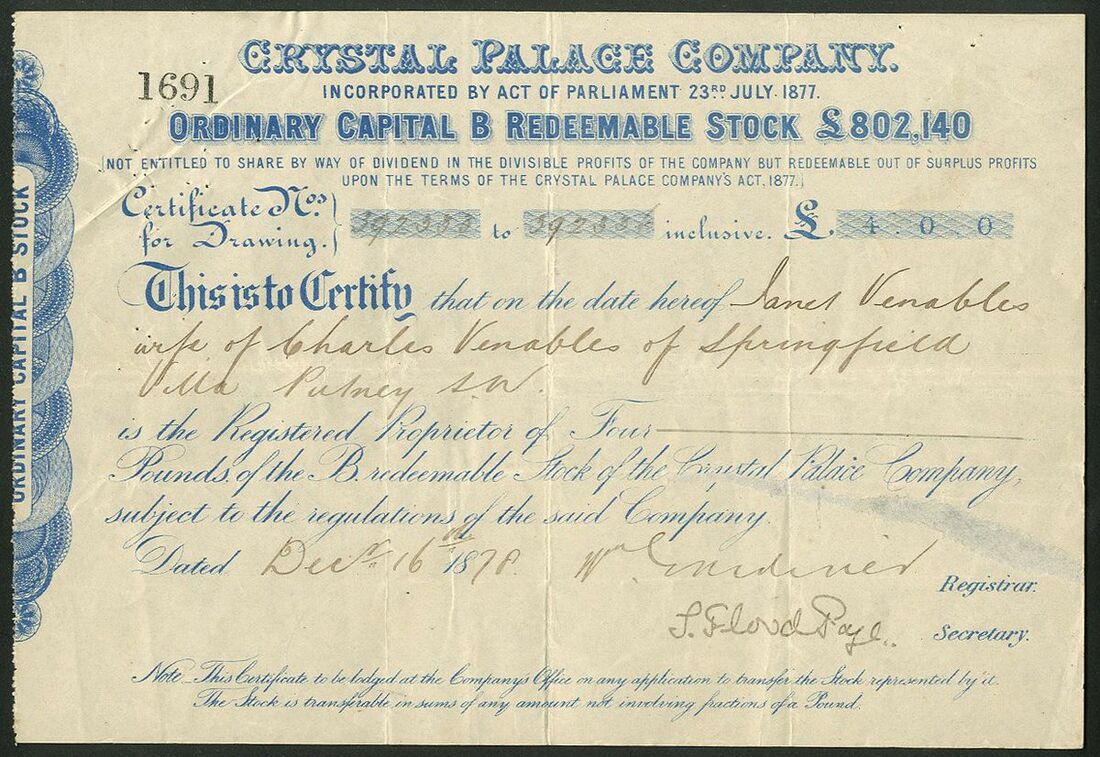 CRYSTAL PALACE COMPANY.
1691
INCORPORATED BY ACT OF PARLIAMENT 23RD JULY 1877.
ORDINARY CAPITAL B REDEEMABLE STOCK £802,140
(NOT ENTITLED TO SHARE BY WAY OF DIVIDEND IN THE DIVISIBLE PROFITS OF THE COMPANY BUT REDEEMABLE OUT OF SURPLUS PROFITS
UPON THE TERMS OF THE CRYSTAL PALACE COMPANY'S ACT, 1877.)
Certificate Nos.
for Drawing. 392333 to inclusive. £. 4.0.0
This is to Certify that on the date hereof Janet Venables
wife of Charles Venables of Springfield
Villa Putney S.W.
is the Registered Proprietor of Four
Pounds of the B. redeemable Stock of the Crystal Palace Company,
subject to the regulations of the said Company.
Dated Decr. 16th 1878. Wm Gardiner
Registrar.
Secretary.
Note_This Certificate to be lodged at the Company's Office on any application to transfer the Stock represented by it.
The Stock is transferable in sums of any amount not involving fractions of a Pound.
ORDINARY CAPITAL B STOCK